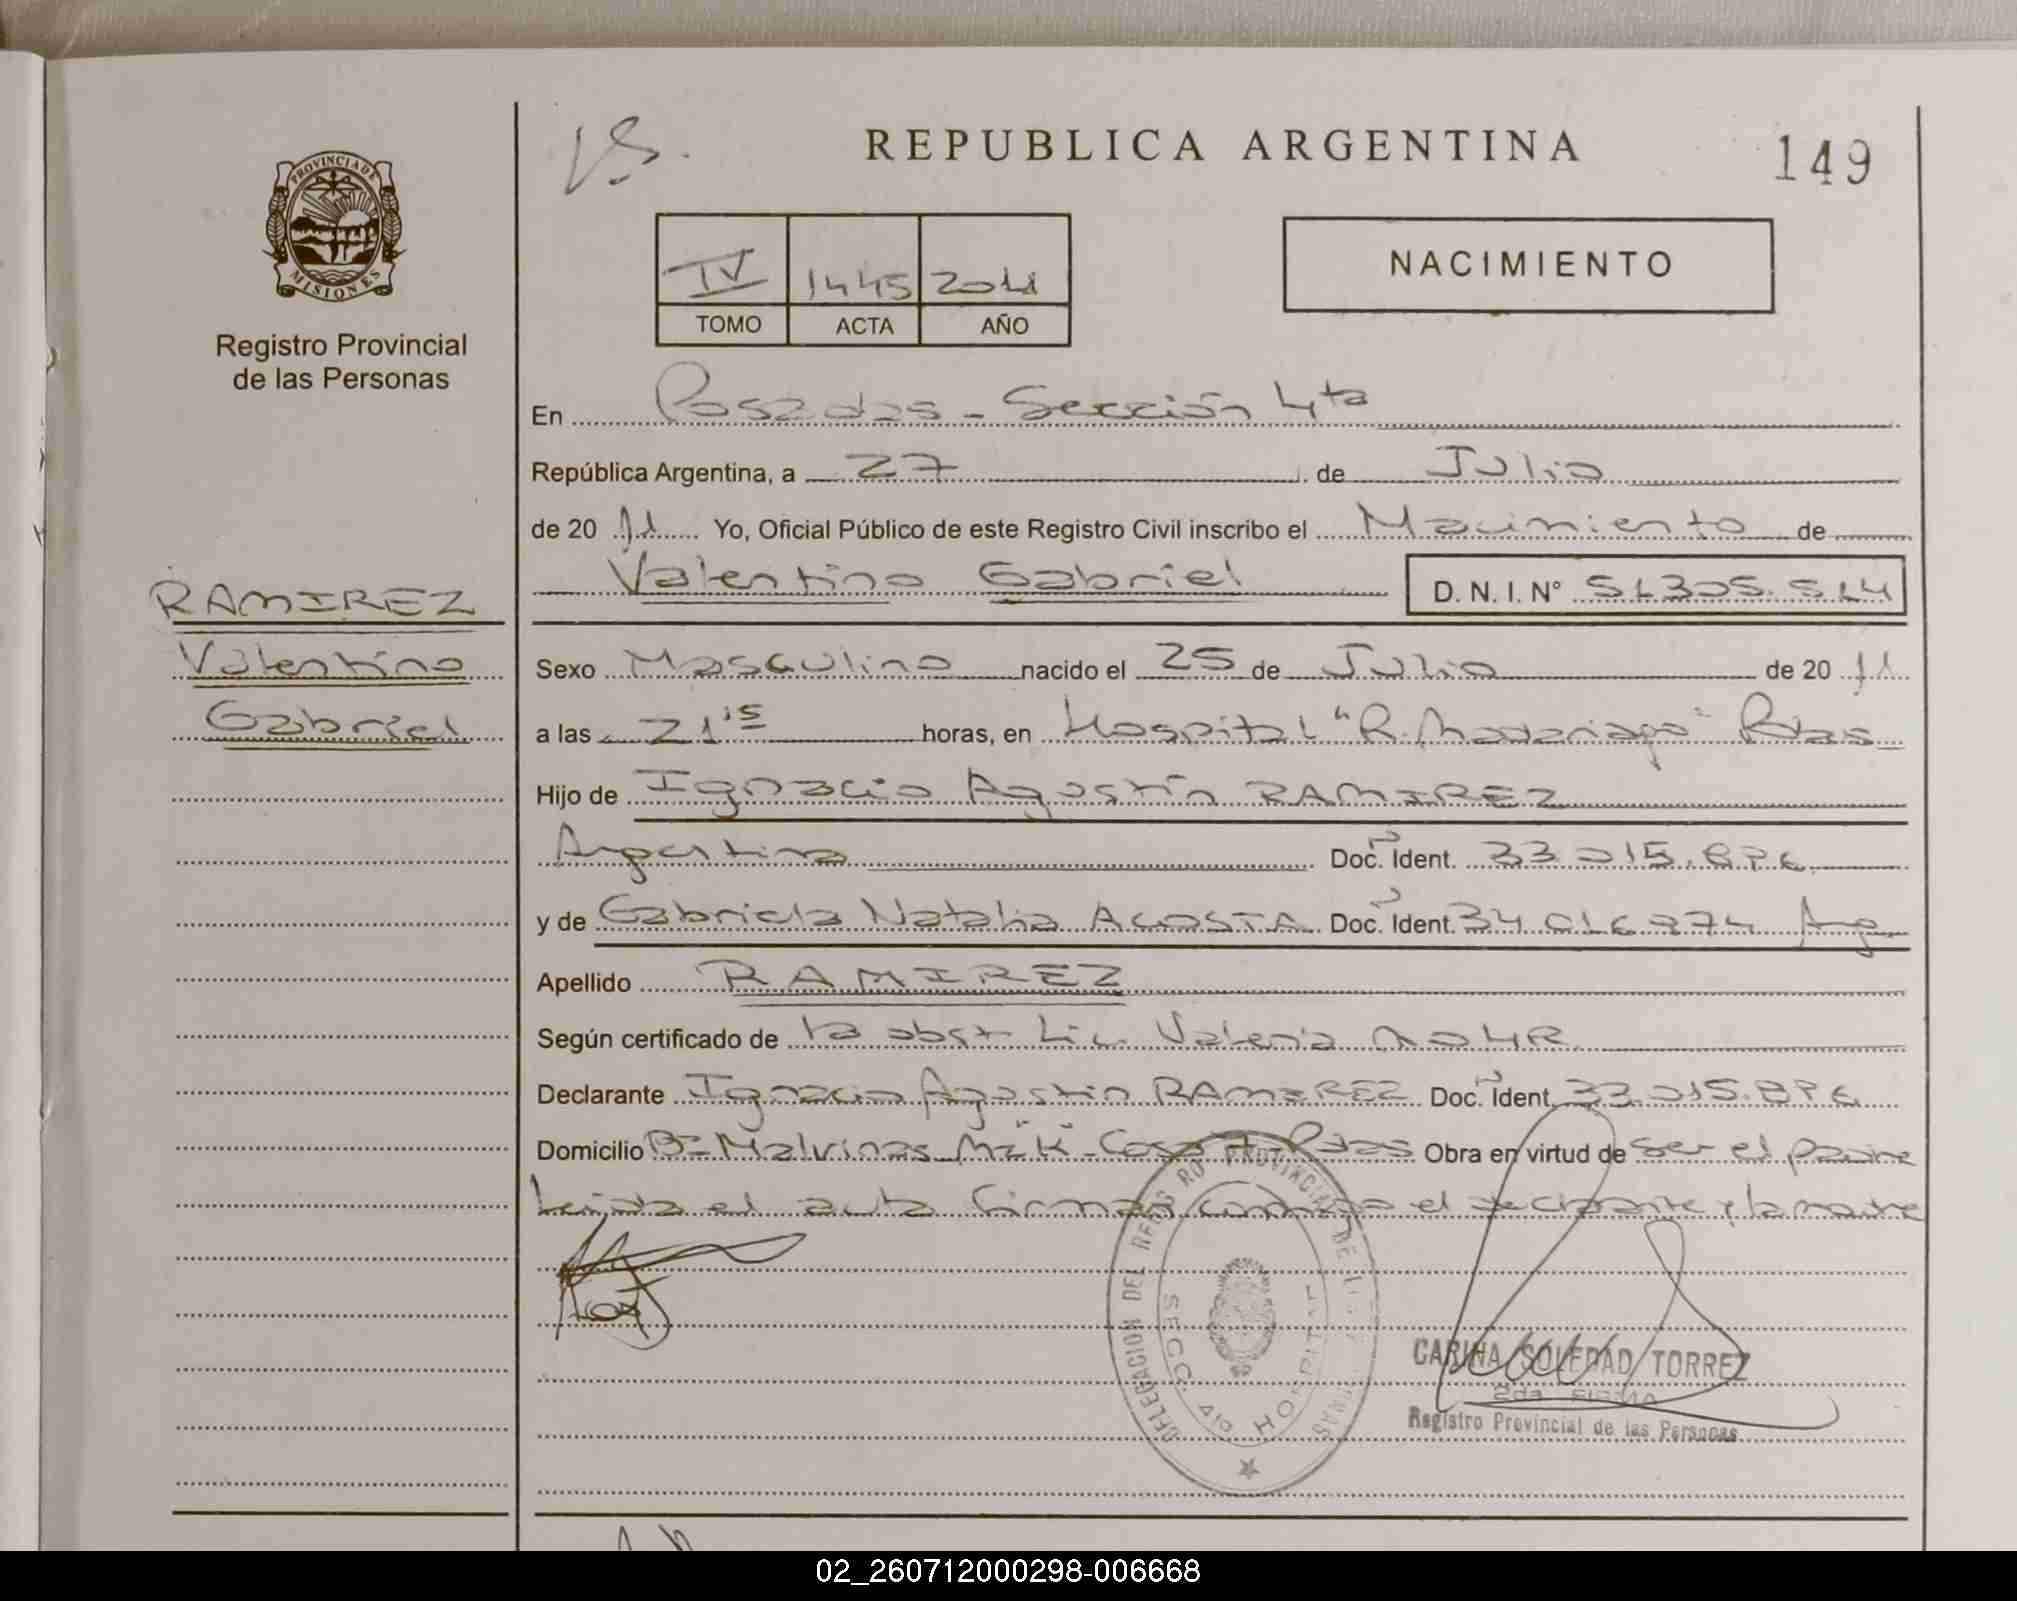 PROVINCIA DE
MISIONES
Registro Provincial
de las Personas
RAMIREZ
Valentino
Gabriel
REPUBLICA ARGENTINA
149
IV 1445 2011
TOMO ACTA AÑO
NACIMIENTO
En Posadas - Sección 4ta
República Argentina, a 27 de Julio
de 20 11 Yo, Oficial Público de este Registro Civil inscribo el Nacimiento de
Valentino Gabriel D. N. I. N° 51.305.514
Sexo Masculino nacido el 25 de Julio de 20 11
a las 21 15 horas, en Hospital "R. Madariaga" Pdas
Hijo de Ignacio Agustín RAMIREZ
Argentino Doc. Ident. 33.015.896
y de Gabriela Natalia ACOSTA Doc. Ident. 34.016.974 Arg
Apellido RAMIREZ
Según certificado de la obst Lic. Valeria MOHR
Declarante Ignacio Agustín RAMIREZ Doc. Ident. 33.015.896
Domicilio B° Malvinas Mz "K" Casa Pdas Obra en virtud de ser el padre
Leída el acta firman conmigo el declarante y la madre
DELEGACION DEL REGISTRO PROVINCIAL DE LAS PERSONAS
SECC. 4ta HOSPITAL
CARINA SOLEDAD TORREZ
2da FIRMA
Registro Provincial de las Personas
02_260712000298-006668